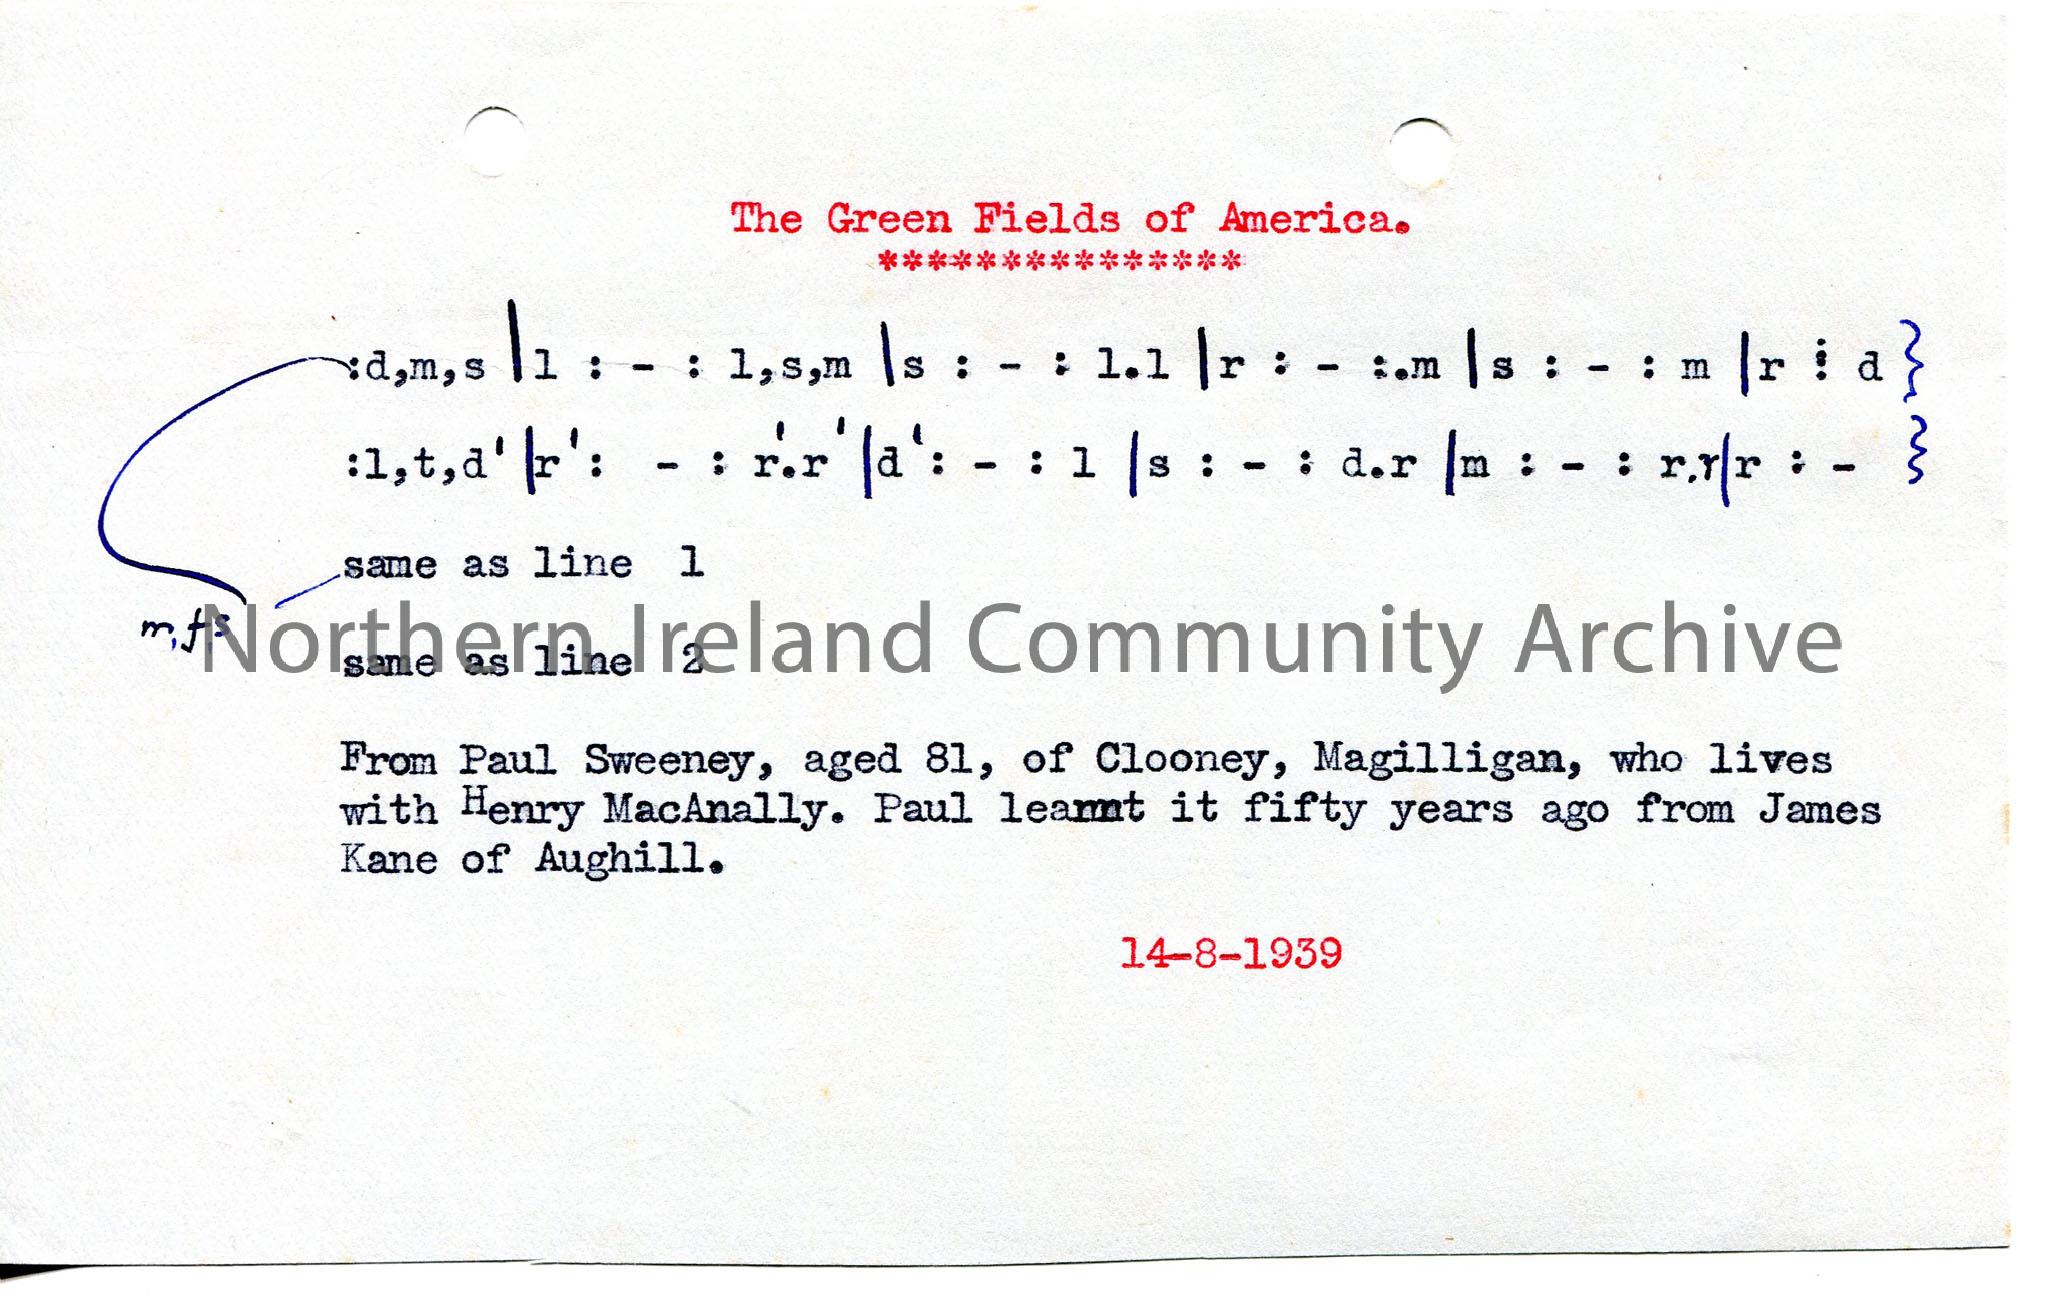 The Green Fields of America.
***************
:d,m,s |l : - : l,s,m |s : - : l.l |r : - :.m |s : - : m |r : d }
:l,t,d' |r' : - : r'.r' |d' : - : l |s : - : d.r |m : - : r.r |r : - }
same as line 1
m,f,s
same as line 2
Northern Ireland Community Archive
From Paul Sweeney, aged 81, of Clooney, Magilligan, who lives
with Henry MacAnally. Paul learnt it fifty years ago from James
Kane of Aughill.
14-8-1939